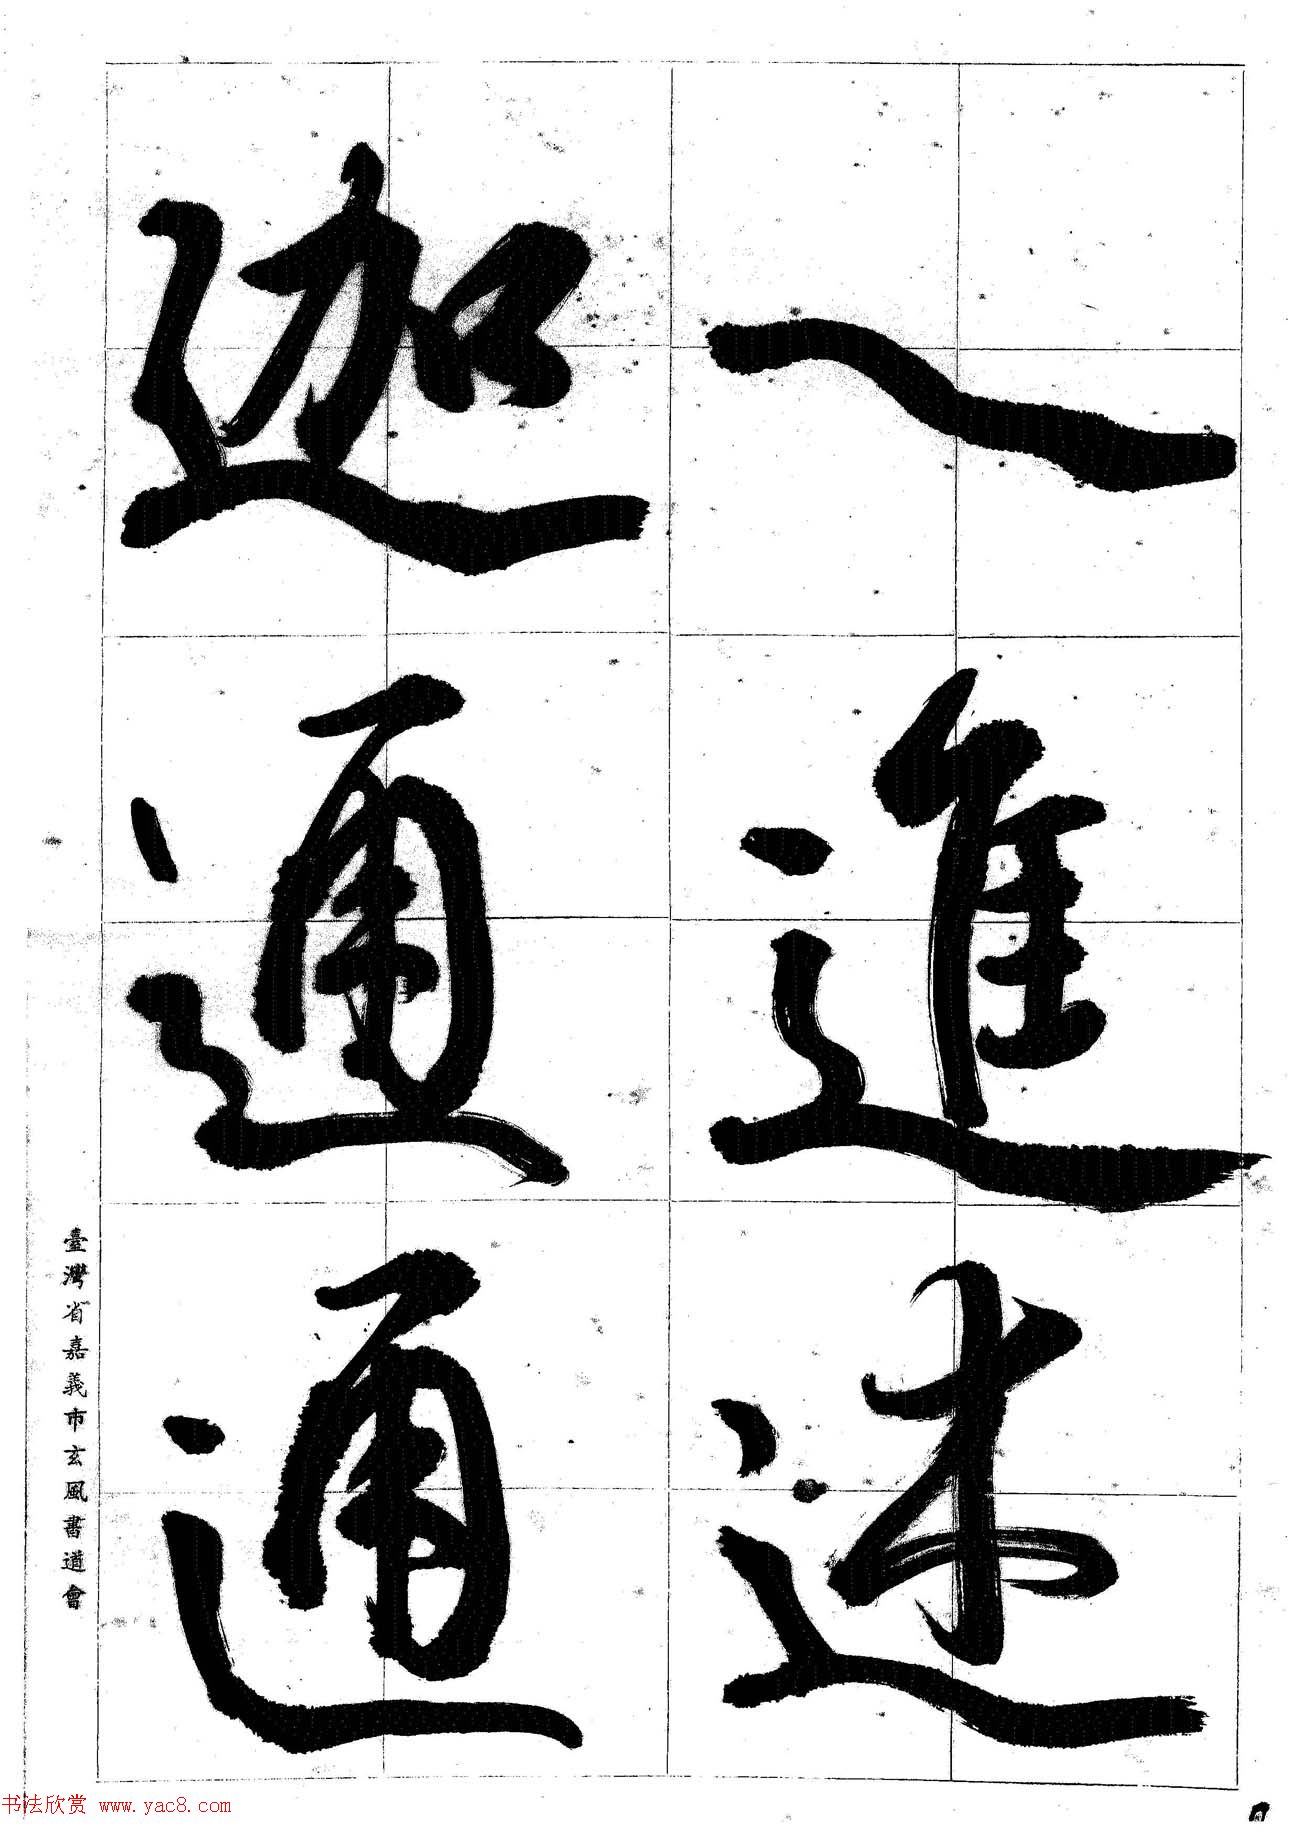 進述
迦通通
臺灣省嘉義市玄風書道會
书法欣赏 www.yac8.com